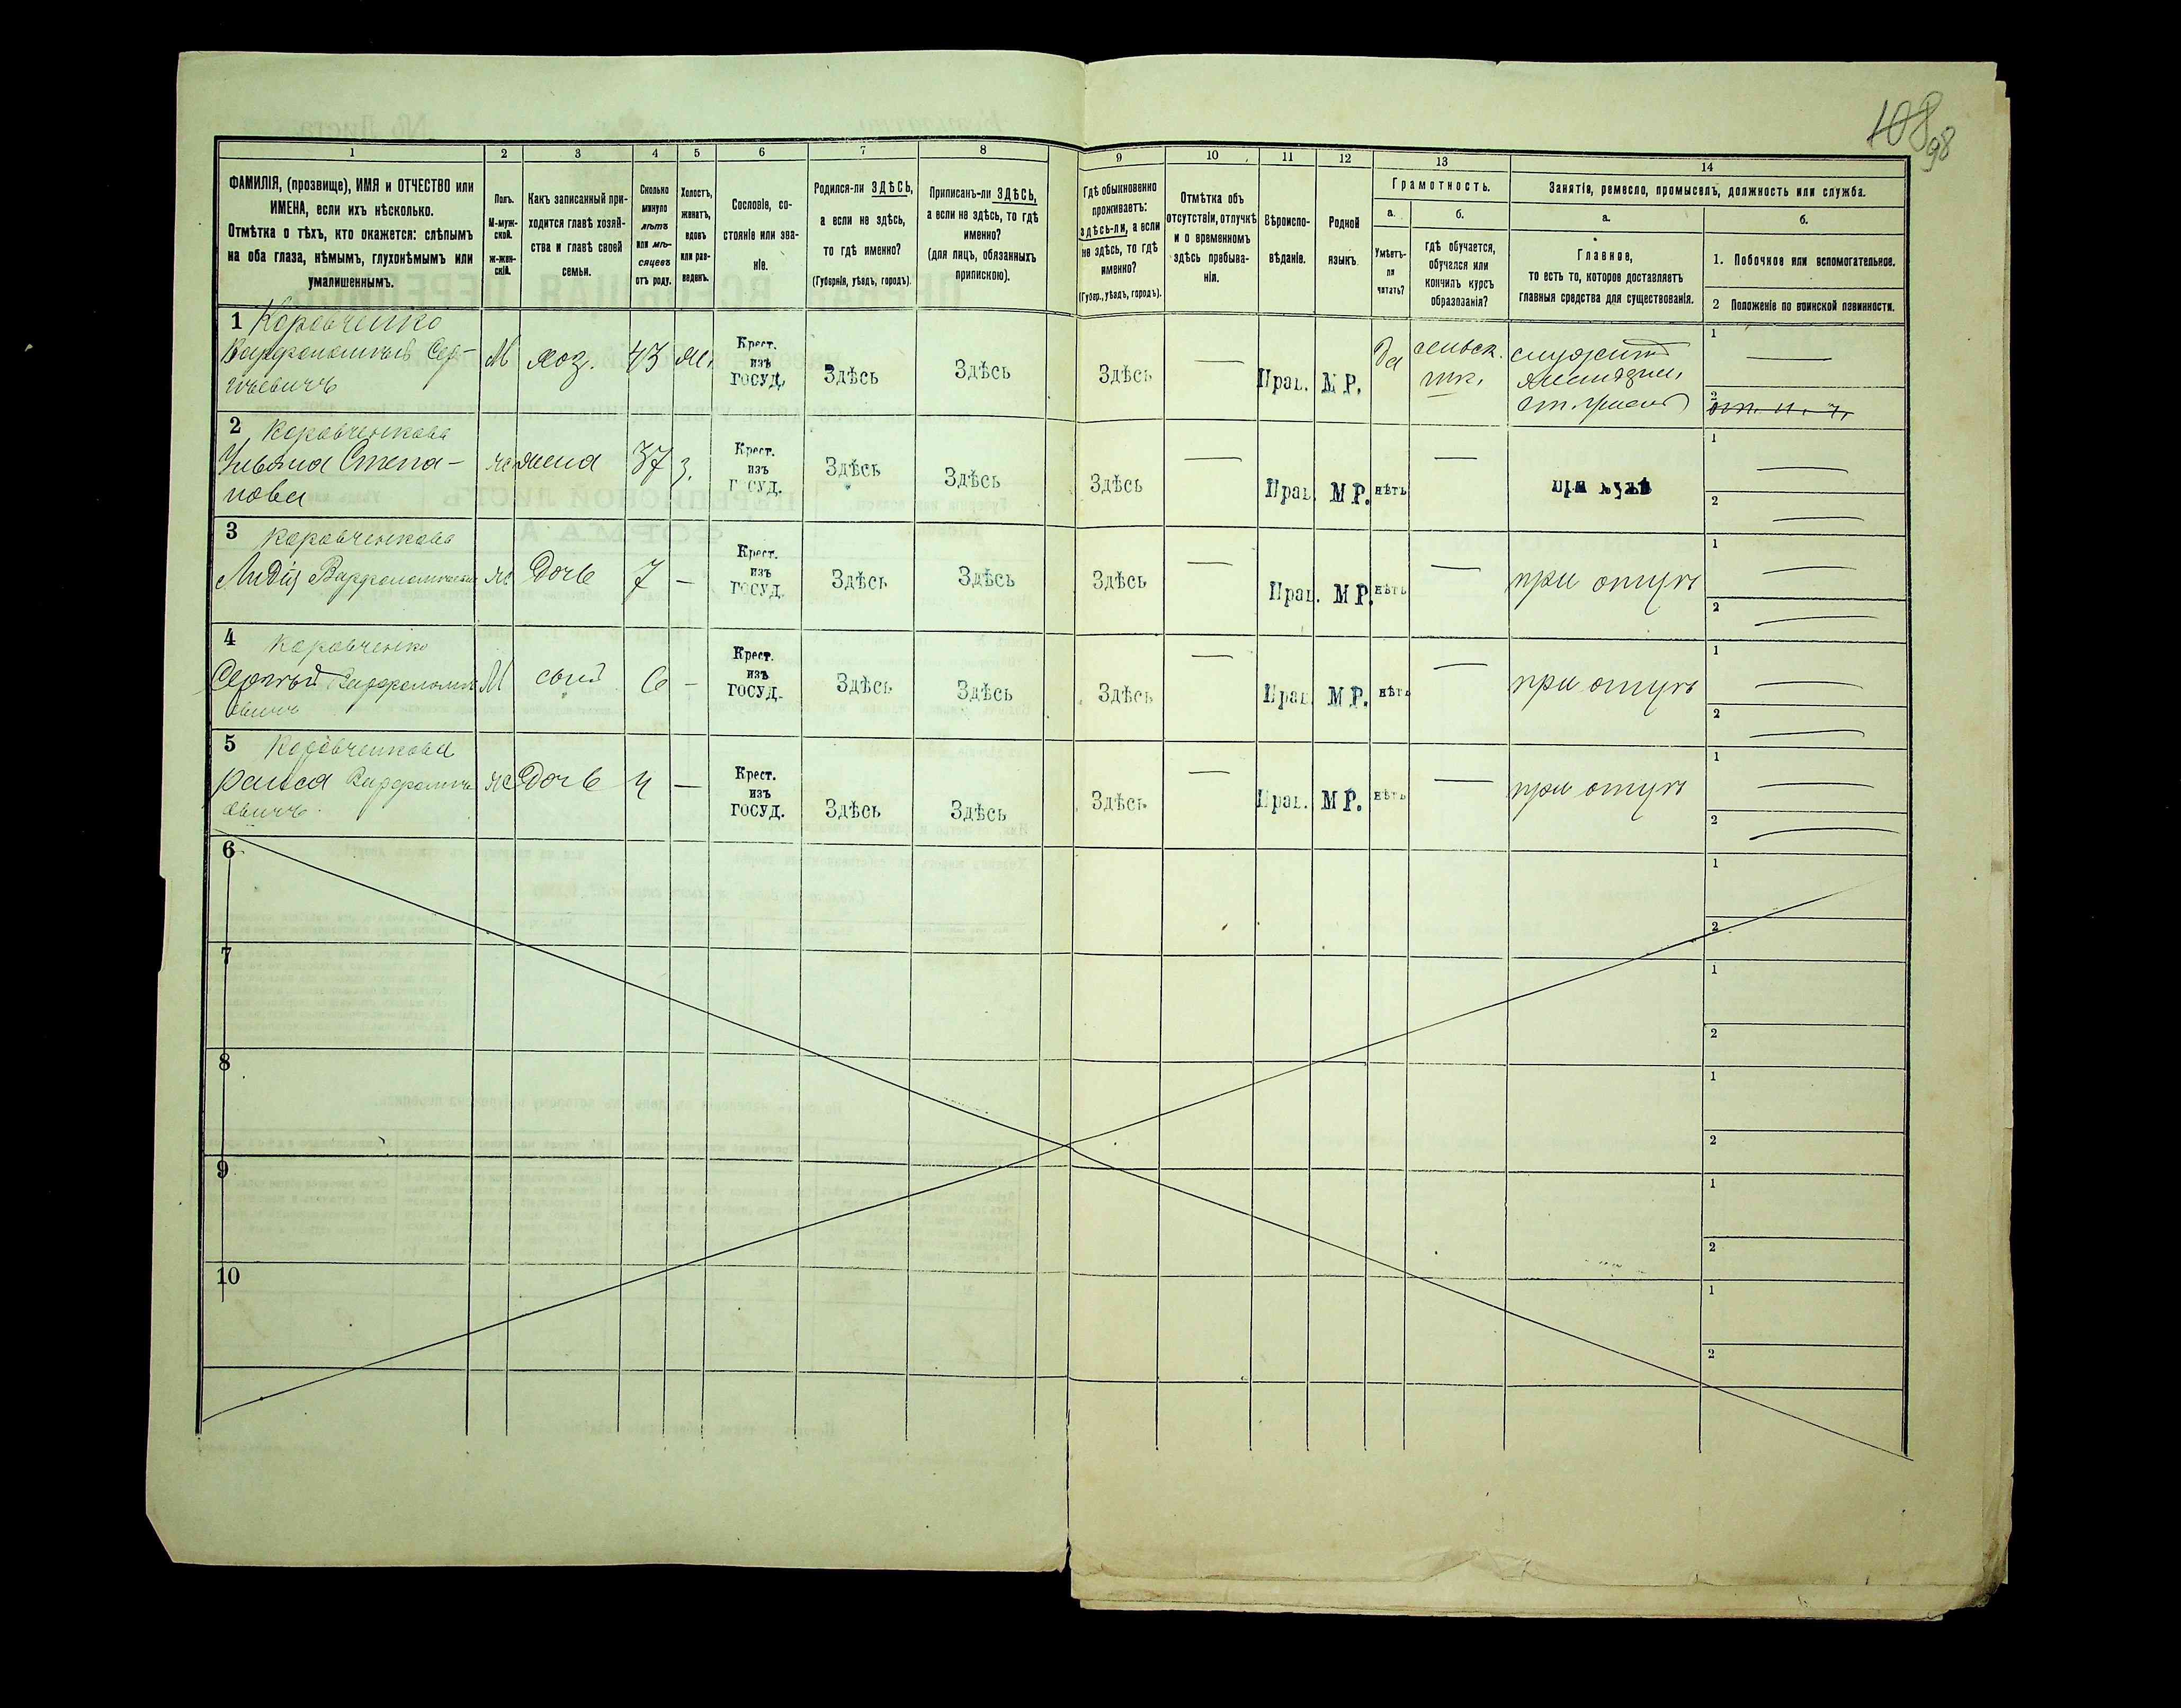 108 98
1 2 3 4 5 6 7 8 9 10 11 12 13 14
ФАМИЛІЯ, (прозвище), ИМЯ и ОТЧЕСТВО или
ИМЕНА, если ихъ нѣсколько.
Отмѣтка о тѣхъ, кто окажется: слѣпымъ
на оба глаза, нѣмымъ, глухонѣмымъ или
умалишеннымъ.
Полъ.
М-муж-
ской.
ж-жен-
скій.
Какъ записанный при-
ходится главѣ хозяй-
ства и главѣ своей
семьи.
Сколько
минуло
лѣтъ
или мѣ-
сяцевъ
отъ роду.
Холостъ,
женатъ,
вдовъ
или раз-
веденъ.
Сословіе, со-
стояніе или зва-
ніе.
Родился-ли ЗДѢСЬ,
а если не здѣсь,
то гдѣ именно?
(Губернія, уѣздъ, городъ).
Приписанъ-ли ЗДѢСЬ,
а если не здѣсь, то гдѣ
именно?
(для лицъ, обязанныхъ
припискою).
Гдѣ обыкновенно
проживаетъ:
здѣсь-ли, а если
не здѣсь, то гдѣ
именно?
(Губер., уѣздъ, городъ).
Отмѣтка объ
отсутствіи, отлучкѣ
и о временномъ
здѣсь пребыва-
ніи.
Вѣроиспо-
вѣданіе.
Родной
языкъ.
Грамотность.
а.
Умѣетъ-
ли
читать?
б.
гдѣ обучается,
обучался или
кончилъ курсъ
образованія?
Занятіе, ремесло, промыселъ, должность или служба.
а.
Главное,
то есть то, которое доставляетъ
главныя средства для существованія.
б.
1. Побочное или вспомогательное.
2 Положеніе по воинской повинности.
1 Коровченко
Варфоломѣй Сер-
гѣевичъ
М хоз. 43 ж.
Крест.
изъ
ГОСУД.
Здѣсь Здѣсь Здѣсь — Прав. М Р. да сельск.
шк.
служитъ
1 —
2
2 Коровченкова
Ульяна Степа-
нова
ж жена 37 з.
Крест.
изъ
ГОСУД.
Здѣсь Здѣсь Здѣсь — Прав. М Р. нѣтъ — при мужѣ
1 —
2 —
3 Коровченкова
Лидія
ж Дочь 7 —
Крест.
изъ
ГОСУД.
Здѣсь Здѣсь Здѣсь — Прав. М Р. нѣтъ — при отцѣ
1 —
2 —
4 Коровченко
Сергѣй
М сынъ 6 —
Крест.
изъ
ГОСУД.
Здѣсь Здѣсь Здѣсь — Прав. М Р. нѣтъ — при отцѣ
1 —
2 —
5 Коровченкова
Раиса
ж Дочь 4 —
Крест.
изъ
ГОСУД.
Здѣсь Здѣсь Здѣсь — Прав. М Р. нѣтъ — при отцѣ
1 —
2 —
6 1
2
7 1
2
8 1
2
9 1
2
10 1
2